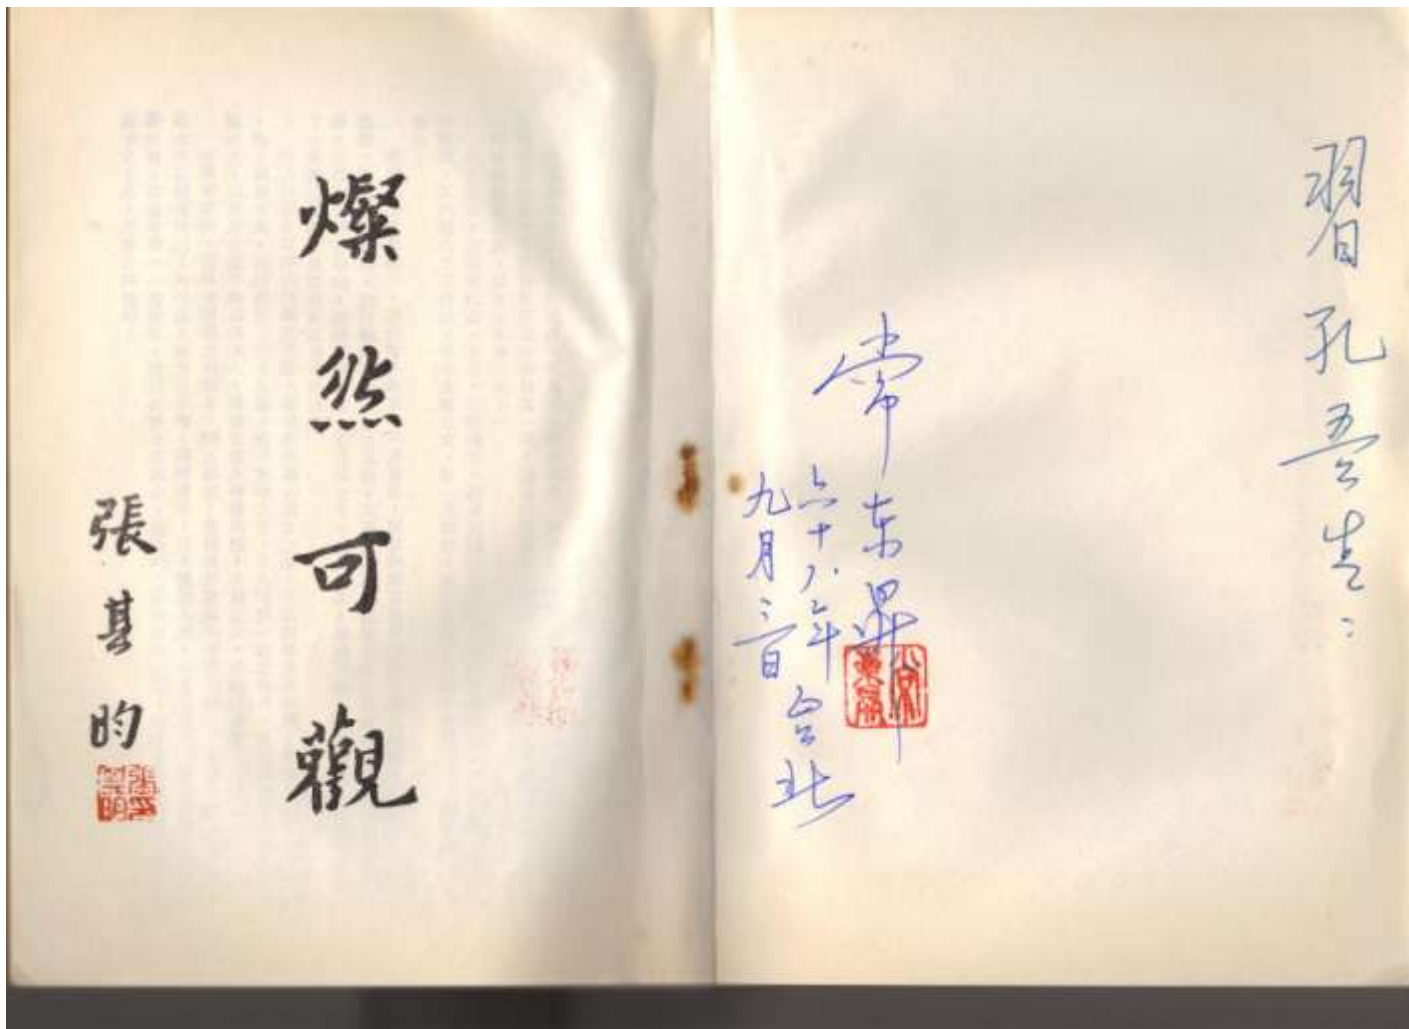 習孔吾
常东昇
六十八年
九月三日
台北
燦然可觀
張其昀